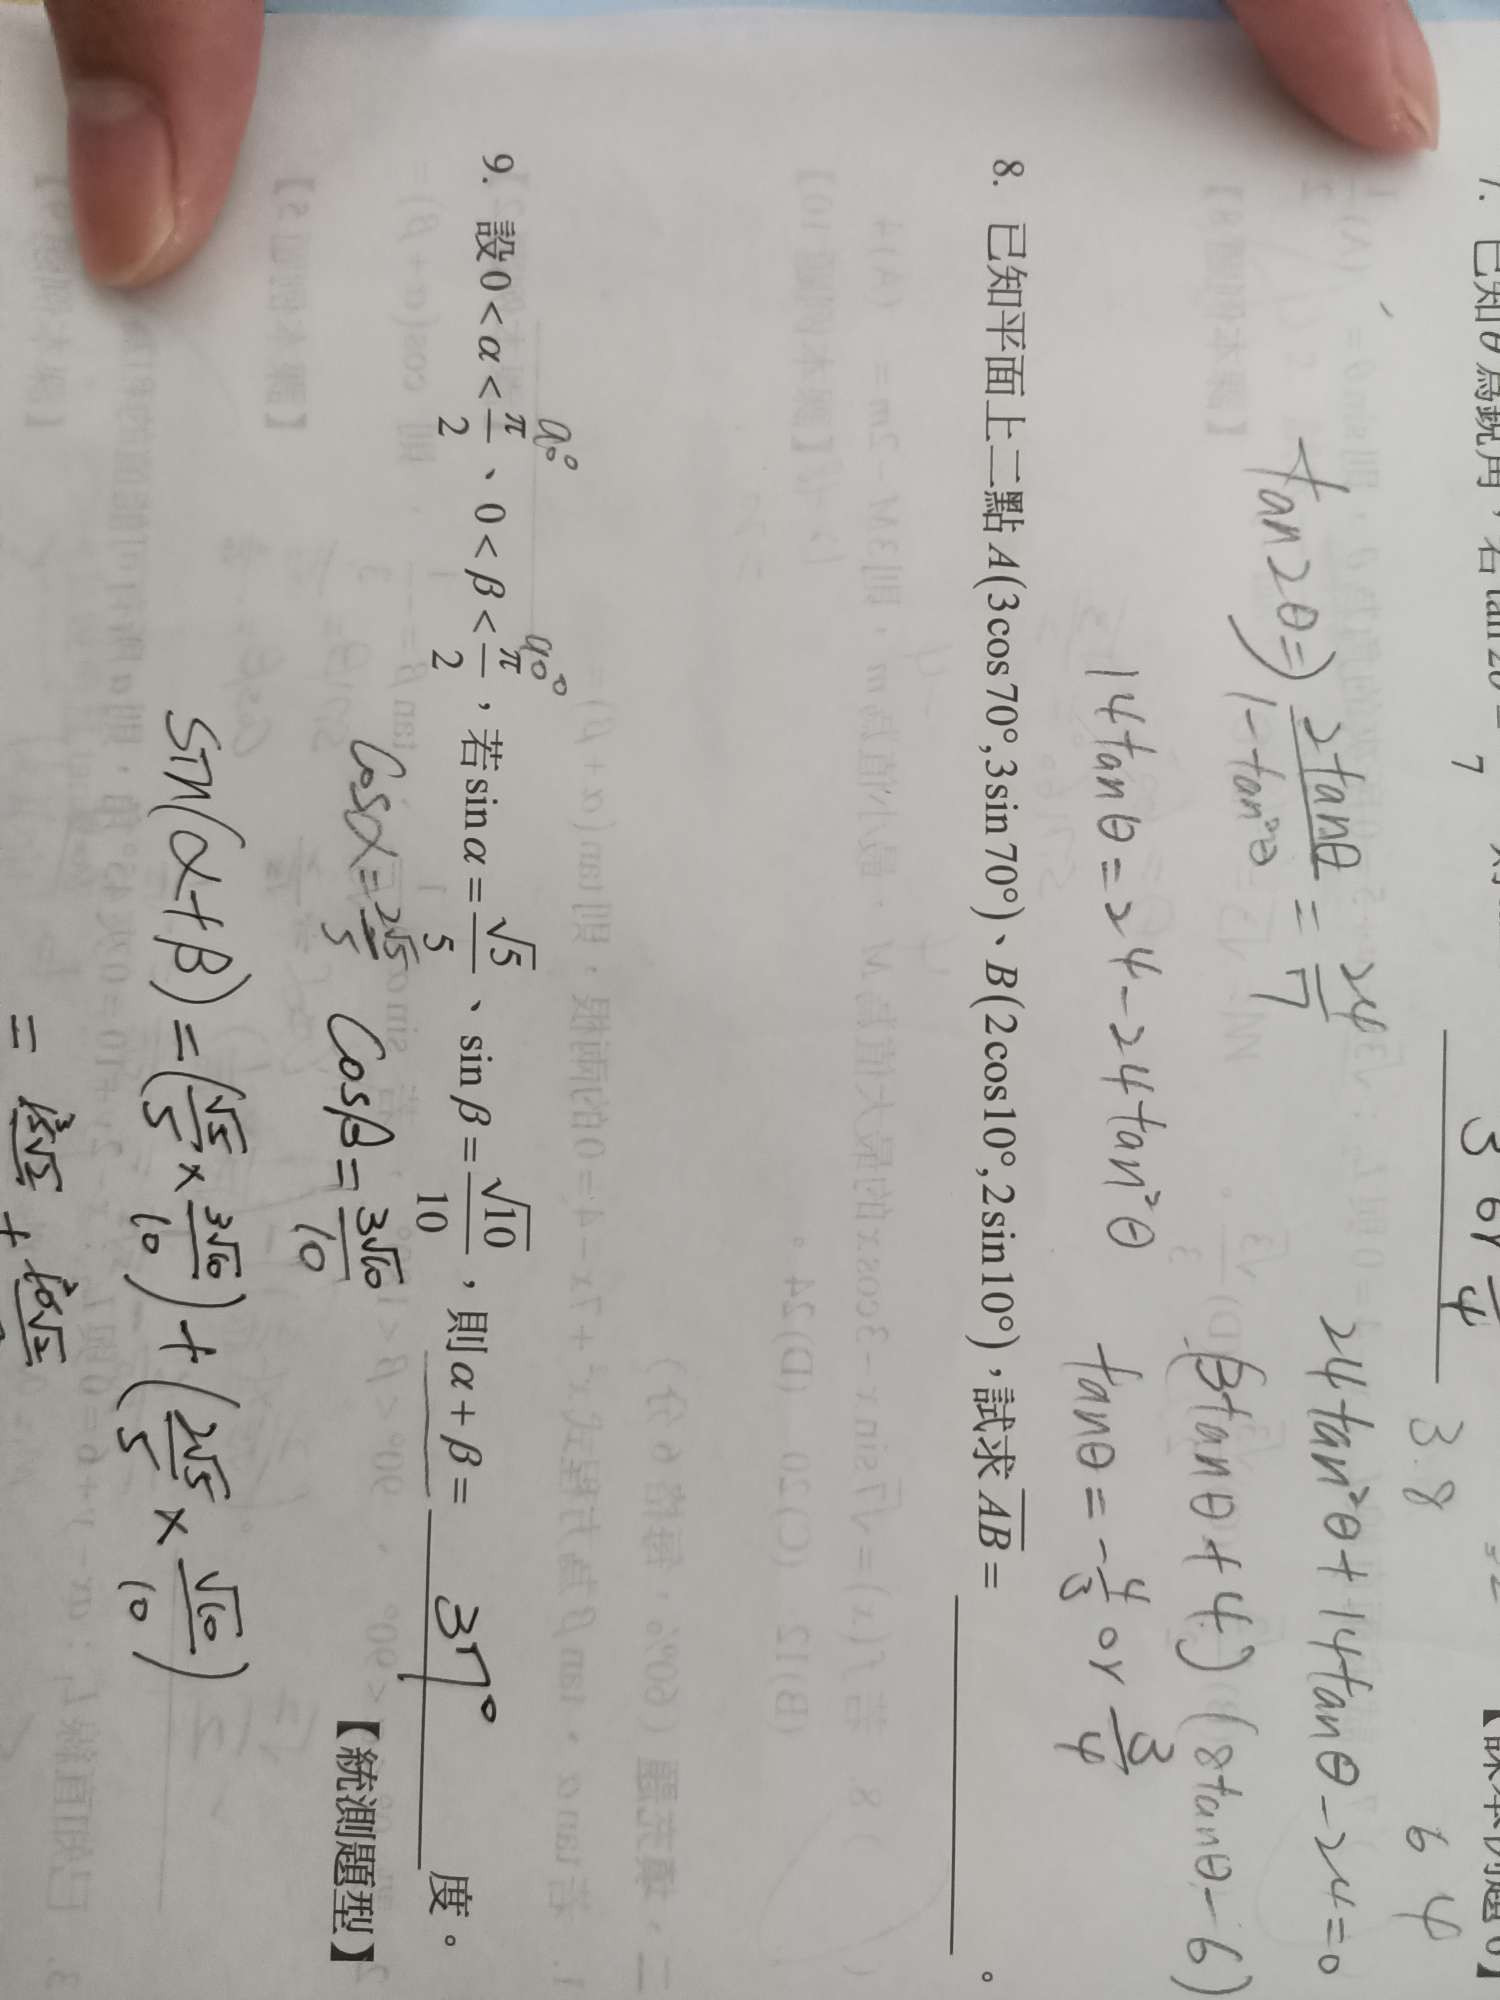 7. 已知θ為銳角，若tan2θ=
7
3 or
4
3 8
6 4
tan2θ=) 2tanθ/1-tan²θ = 24/7
24tan²θ+14tanθ-24=0
14tanθ=24-24tan²θ
(3tanθ+4)(8tanθ-6)
tanθ=-4/3 or 3/4
8. 已知平面上二點A(3cos70°,3sin70°)、B(2cos10°,2sin10°)，試求AB=。
90° 90°
9. 設0<α<π/2、0<β<π/2，若sinα=√5/5、sinβ=√10/10，則α+β= 37° 度。
【統測題型】
cosα=2√5/5 cosβ=3√10/10
sin(α+β)=(√5/5×3√10/10)+(2√5/5×√10/10)